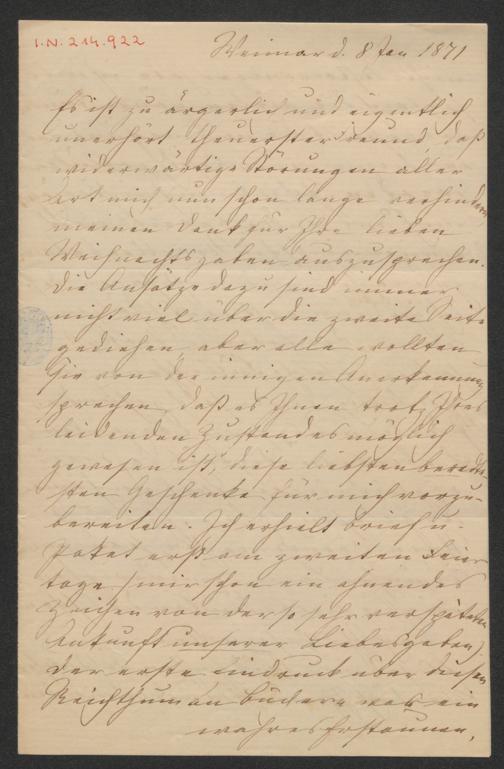 I.N. 214.922
Weimar d. 8 Jan 1871
Es ist zu ärgerlich und eigentlich
unerhört theuerster Freund, daß
widerwärtige Störungen aller
Art mich nun schon lange verhindern
meinen Dank für Ihre lieben
Weihnachtsgaben auszusprechen.
Die Ansätze dazu sind immer
nicht viel über die zweite Seite
gediehen, aber alle wollten
Sie von der innigen Anerkennung
sprechen, daß es Ihnen trotz Ihres
leidenden Zustandes möglich
gewesen ist, diese liebsten
sten Geschenke für mich vorzu-
bereiten. Ich erhielt Brief u
Paket erst am zweiten Feier
tage (mir schon ein ahnendes
Zeichen von der so sehr verspäteten
Ankunft unserer Liebesgaben)
Der erste Eindruck über diesen
Reichthum an Büchern war ein
wahres Erstaunen,